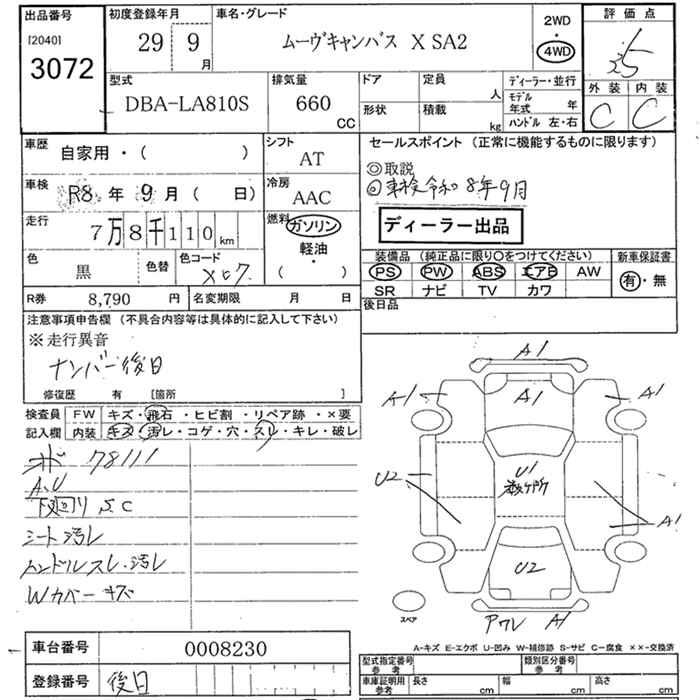 出品番号
[2040]
3072
初度登録年月
29 9月
車名・グレード
ムーヴキャンバス X SA2
2WD
4WD
評価点
3.5
外装 内装
C C
型式
DBA-LA810S
排気量
660
CC
ドア
形状
定員 人
積載 kg
ディーラー・並行
モデル年式 年
ハンドル 左・右
車歴
自家用・( )
シフト
AT
車検
R8 年 9月( 日)
冷房
AAC
走行
7万8千110km
燃料
ガソリン
軽油
( )
色
黒
色替
色コード
X07
R券 8,790 円
名変期限 月 日
セールスポイント (正常に機能するものに限ります)
◎取説
◎車検令和8年9月
ディーラー出品
装備品 (純正品に限り○をつけてください)
PS PW ABS エアB AW
SR ナビ TV カワ
新車保証書
有・無
後日品
注意事項申告欄 (不具合内容等は具体的に記入して下さい)
※走行異音
ナンバー後日
修復歴 有 [箇所 ]
検査員記入欄
FW キズ・飛石・ヒビ割・リペア跡・×要
内装 キズ・汚レ・コゲ・穴・スレ・キレ・破レ
78111
A、U
下回り S、C
シート汚レ
ハンドルスレ、汚レ
Wカバーキズ
A1
A1 A1 A1
U2
U1
数ヶ所
A1
U2
スペア
アワレ A1
A-キズ E-エクボ U-凹み W-補修跡 S-サビ C-腐食 ××-交換済
車台番号
0008230
登録番号
後日
型式指定番号
参考
類別区分番号
参考
車庫証明用
参考
長さ cm
幅 cm
高さ cm